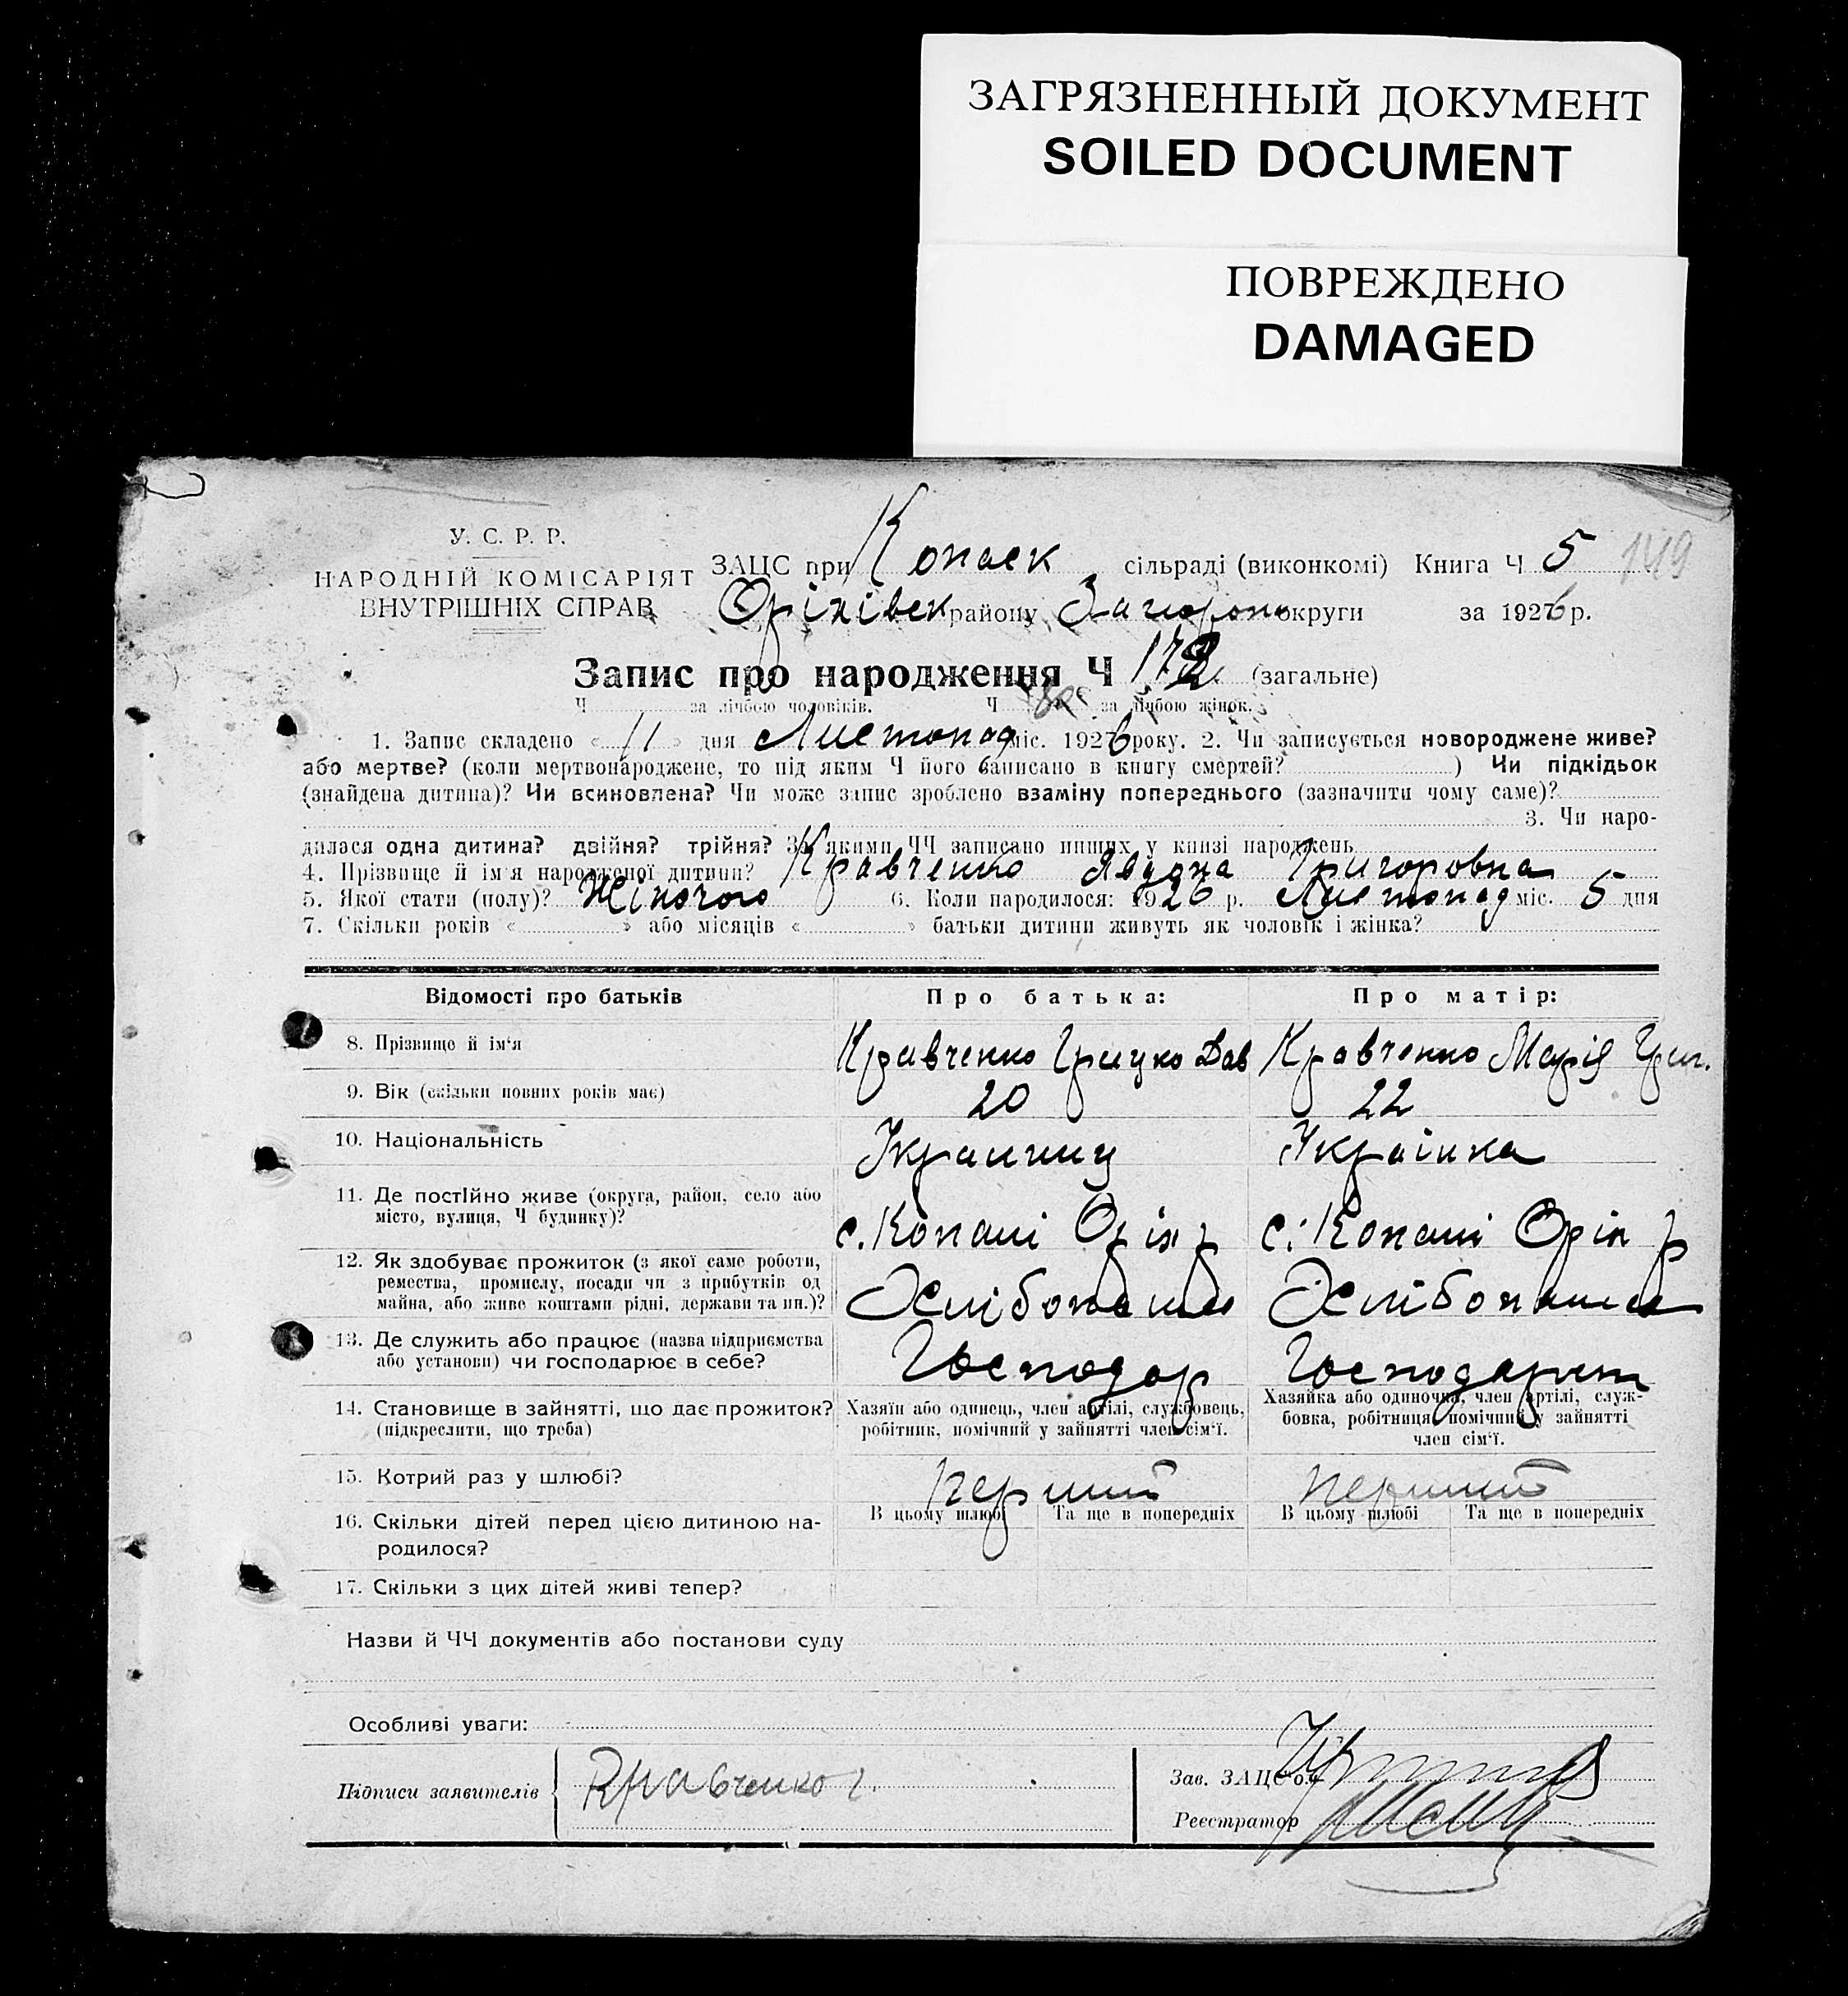 ЗАГРЯЗНЕННЫЙ ДОКУМЕНТ
SOILED DOCUMENT
ПОВРЕЖДЕНО
DAMAGED
У. С. Р. Р.
НАРОДНІЙ КОМІСАРІЯТ
ВНУТРІШНІХ СПРАВ
ЗАЦС при Копаск сільраді (виконкомі) Книга Ч 5 149
Оріхівск району Запороз округи за 1926 р.
Запис про народження Ч 172 (загальне)
Ч за лічбою чоловіків. Ч за лічбою жінок.
1. Запис складено « 11 » дня Листопад міс. 1926 року. 2. Чи записується новороджене живе?
або мертве? (коли мертвонароджене, то під яким Ч його записано в книгу смертей? ) Чи підкідьок
(знайдена дитина)? Чи всиновлена? Чи може запис зроблено взаміну попереднього (зазначити чому саме)?
3. Чи наро-
дилася одна дитина? двійня? трійня? За якими ЧЧ записано инших у книзі народжень
4. Прізвище й ім'я народженої дитини? Кравченко Явдоха Григоровна
5. Якої стати (полу)? Жіночого 6. Коли народилося: 1926 р. Листопад міс. 5 дня
7. Скільки років « » або місяців « » батьки дитини живуть як чоловік і жінка?
Відомості про батьків Про батька: Про матір:
8. Прізвище й ім'я Кравченко Грицко Дав Кравченко Марія Григ.
9. Вік (скільки повних років має) 20 22
10. Національність Украинец Украінка
11. Де постІйно живе (округа, район, село або
місто, вулиця, Ч будинку)? с. Копані Оріх р с. Копані Оріх р
12. Як здобуває прожиток (з якої саме роботи,
ремества, промислу, посади чи з прибутків од
майна, або живе коштами рідні, держави та ин.)? Хлібопаше Хлібопаше
13. Де служить або працює (назва підприємства
або установи) чи господарює в себе? Господар
14. Становище в зайнятті, що дає прожиток?
(підкреслити, що треба)
Хазяїн або одинець, член артілі, службовець,
робітник, помічний у зайнятті член сім'ї.
Хазяйка або одиночка, член артілі, служ-
бовка, робітниця, помічний у зайнятті
член сім'ї.
15. Котрий раз у шлюбі? перший перший
16. Скільки дітей перед цією дитиною на-
родилося?
В цьому шлюбі Та ще в попередніх В цьому шлюбі Та ще в попередніх
17. Скільки з цих дітей живі тепер?
Назви й ЧЧ документів або постанови суду
Особливі уваги:
Підписи заявителів Кравченко Г.
Зав. ЗАЦС'ом
Реєстратор